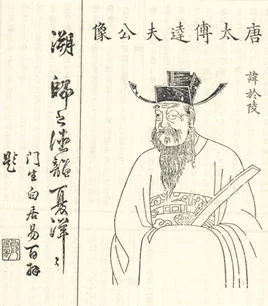 唐太傅達夫公像
諱於陵
溯之德韶夏洋々
門生白居易百拜
題